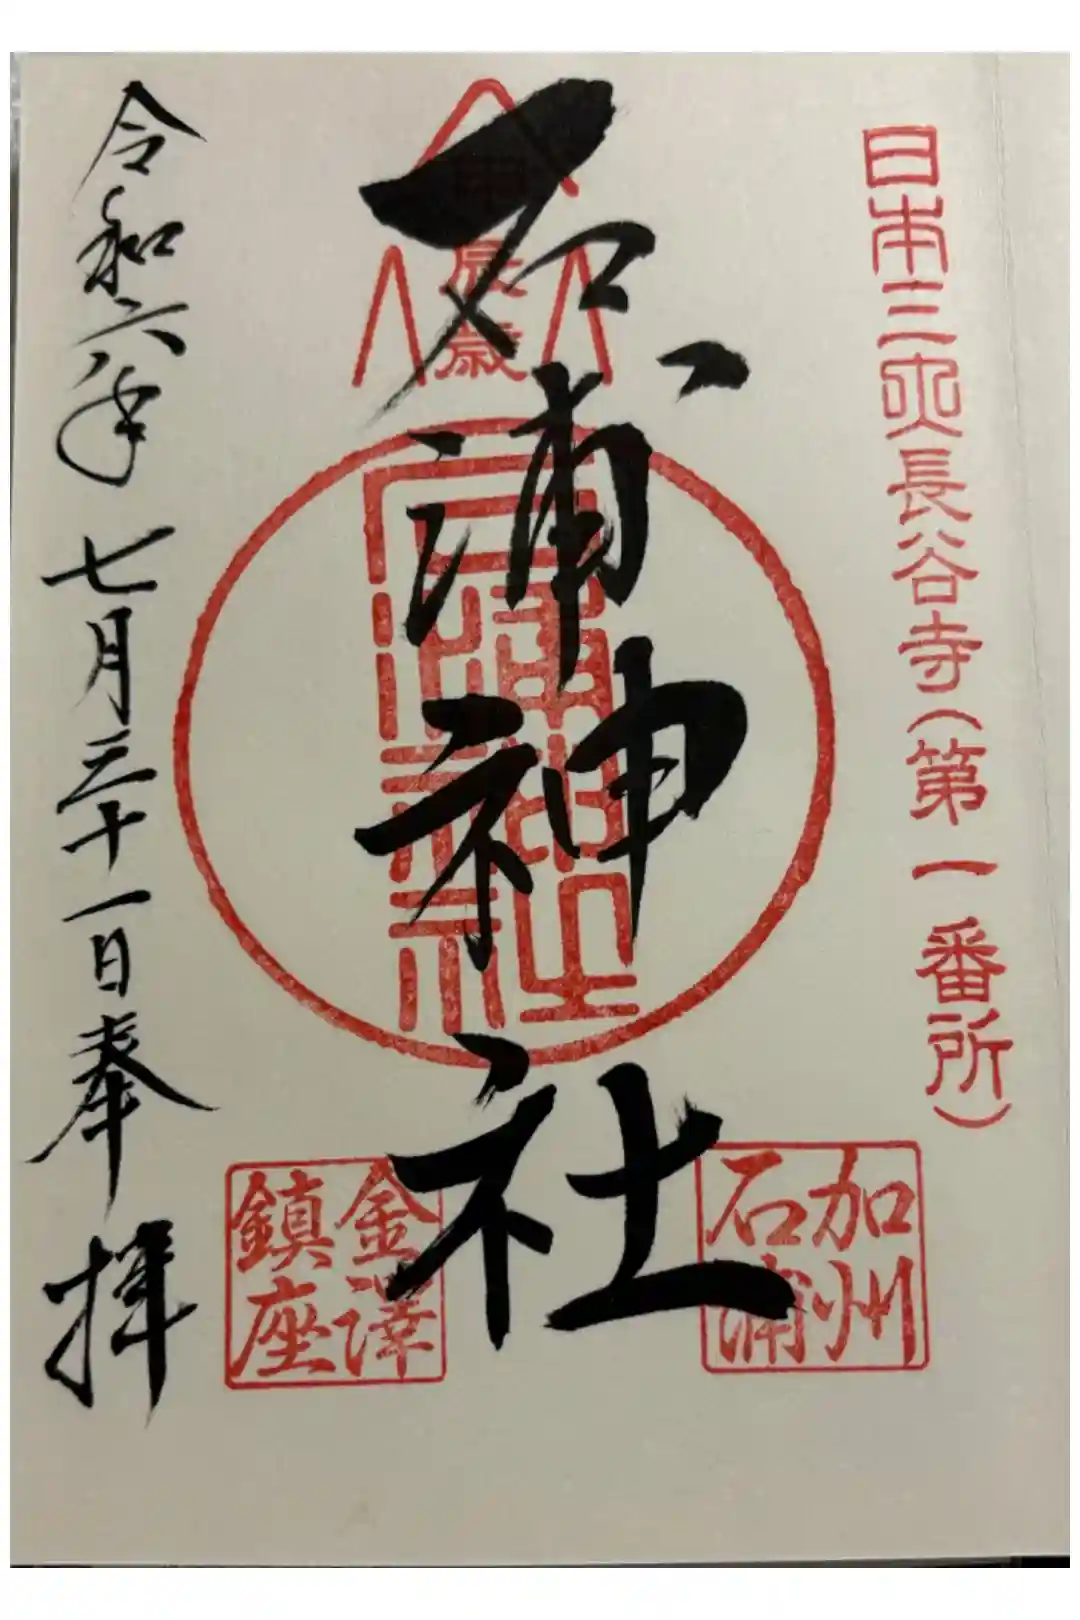 日本三大長谷寺(第一番所)
加州
石浦
甲
辰歳
石浦神社
石浦神社
金澤
鎮座
令和六年七月三十一日奉拝